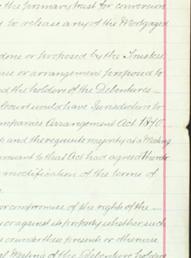 the primary trust for conversion
to release any of the Mortgaged
done or proposed by the Trustees
or arrangement proposed to
and the holders of the Debentures
Court would have Jurisdiction to
Companies Arrangement Act 1870
and the requisite majority at a Meeting
pursuant to that Act had agreed thereto
modification of the terms of
or compromise of the rights of the
or against its property whether such
under these presents or otherwise
Meeting of the Debenture holders